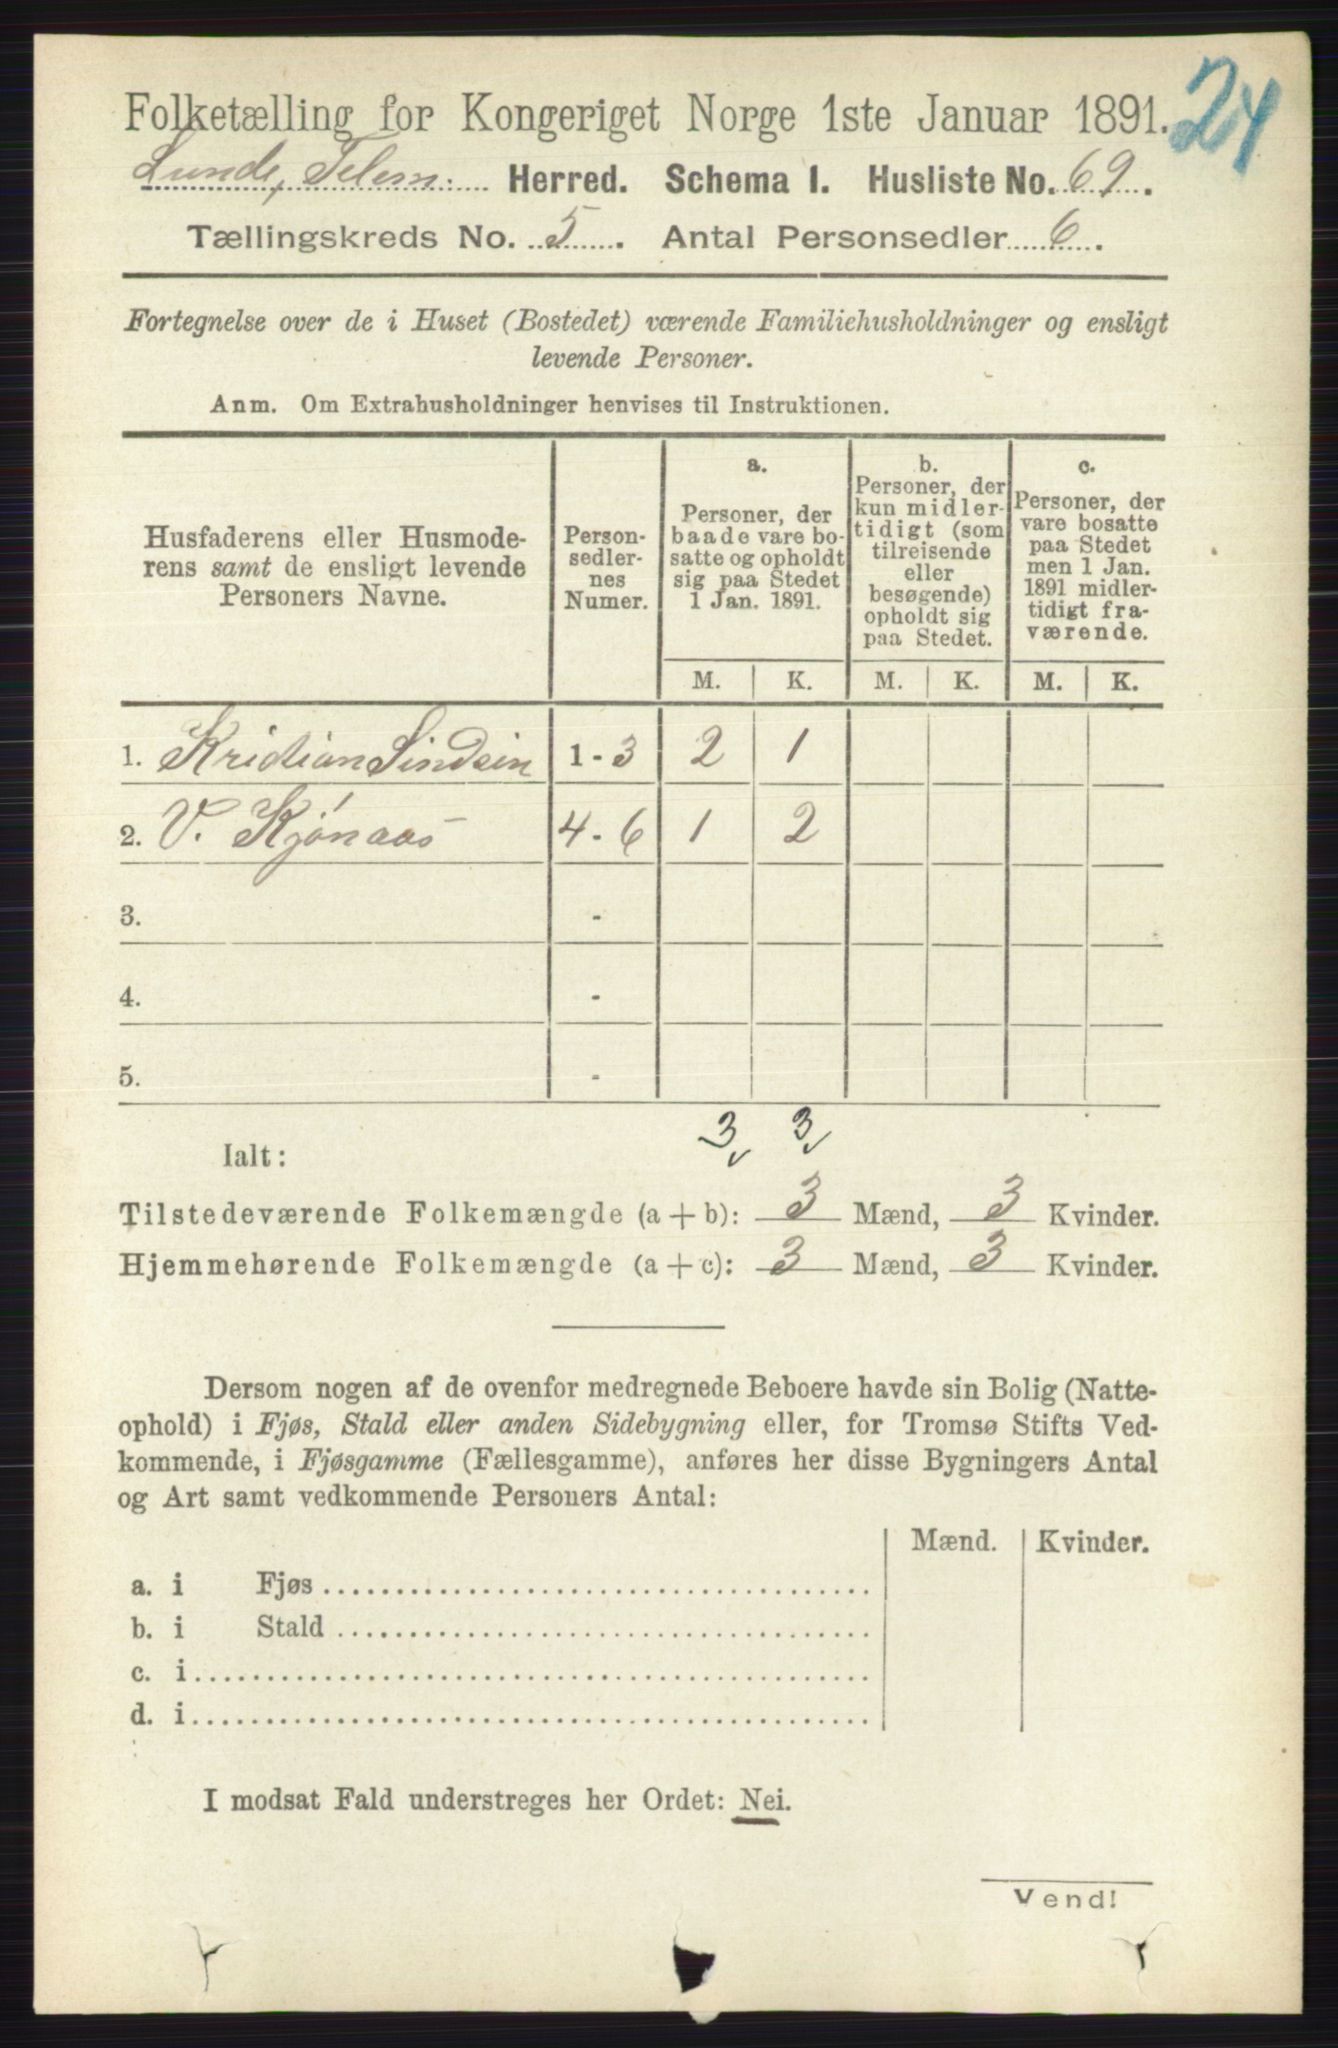 24
Folketælling for Kongeriget Norge 1ste Januar 1891.
Lunde, Telem. Herred. Schema I. Husliste No. 69.
Tællingskreds No. 5. Antal Personsedler 6.
Fortegnelse over de i Huset (Bostedet) værende Familiehusholdninger og ensligt
levende Personer.
Anm. Om Extrahusholdninger henvises til Instruktionen.
Husfaderens eller Husmode-
rens samt de ensligt levende
Personers Navne.
Person-
sedler-
nes
Numer.
a.
Personer, der
baade vare bo-
satte og opholdt
sig paa Stedet
1 Jan. 1891.
b.
Personer, der
kun midler-
tidigt (som
tilreisende
eller
besøgende)
opholdt sig
paa Stedet.
c.
Personer, der
vare bosatte
paa Stedet
men 1 Jan.
1891 midler-
tidigt fra-
værende.
M. K. M. K. M. K.
1. Kristian 1-3 2 1
2. V. Kjønaas 4-6 1 2
3. -
4. -
5. -
Ialt: 3 3
Tilstedeværende Folkemængde (a + b): 3 Mænd, 3 Kvinder.
Hjemmehørende Folkemængde (a + c): 3 Mænd, 3 Kvinder.
Dersom nogen af de ovenfor medregnede Beboere havde sin Bolig (Natte-
ophold) i Fjøs, Stald eller anden Sidebygning eller, for Tromsø Stifts Ved-
kommende, i Fjøsgamme (Fællesgamme), anføres her disse Bygningers Antal
og Art samt vedkommende Personers Antal:
Mænd. Kvinder.
a. i Fjøs
b. i Stald
c. i
d. i
I modsat Fald understreges her Ordet: Nei.
Vend!